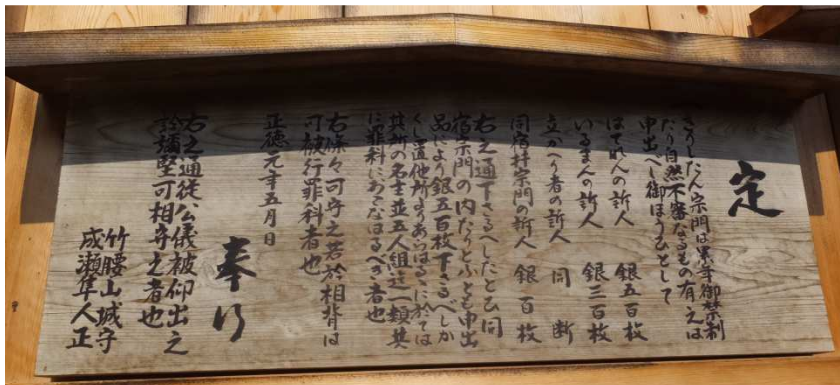 定
きりしたん宗門は累年御禁制
たり自然不審なるもの有之は
申出べし御ほうひとして
はてれんの訴人　銀五百枚
いるまんの訴人　銀三百枚
立かへり者の訴人　同断
同宿并宗門の訴人　銀百枚
右之通下さるへしたとひ同
宿宗門の内たりといふとも申出
品により銀五百枚下さるべしか
くし置他所よりあらはるゝに於ては
其所の名主並五人組迄一類共
に罪科におこなはるべき者也
右條々可守之若於相背は
可被行罪科者也
正徳元年五月日
奉行
右之通従公儀被仰出之
訖彌堅可相守之者也
竹腰山城守
成瀬隼人正